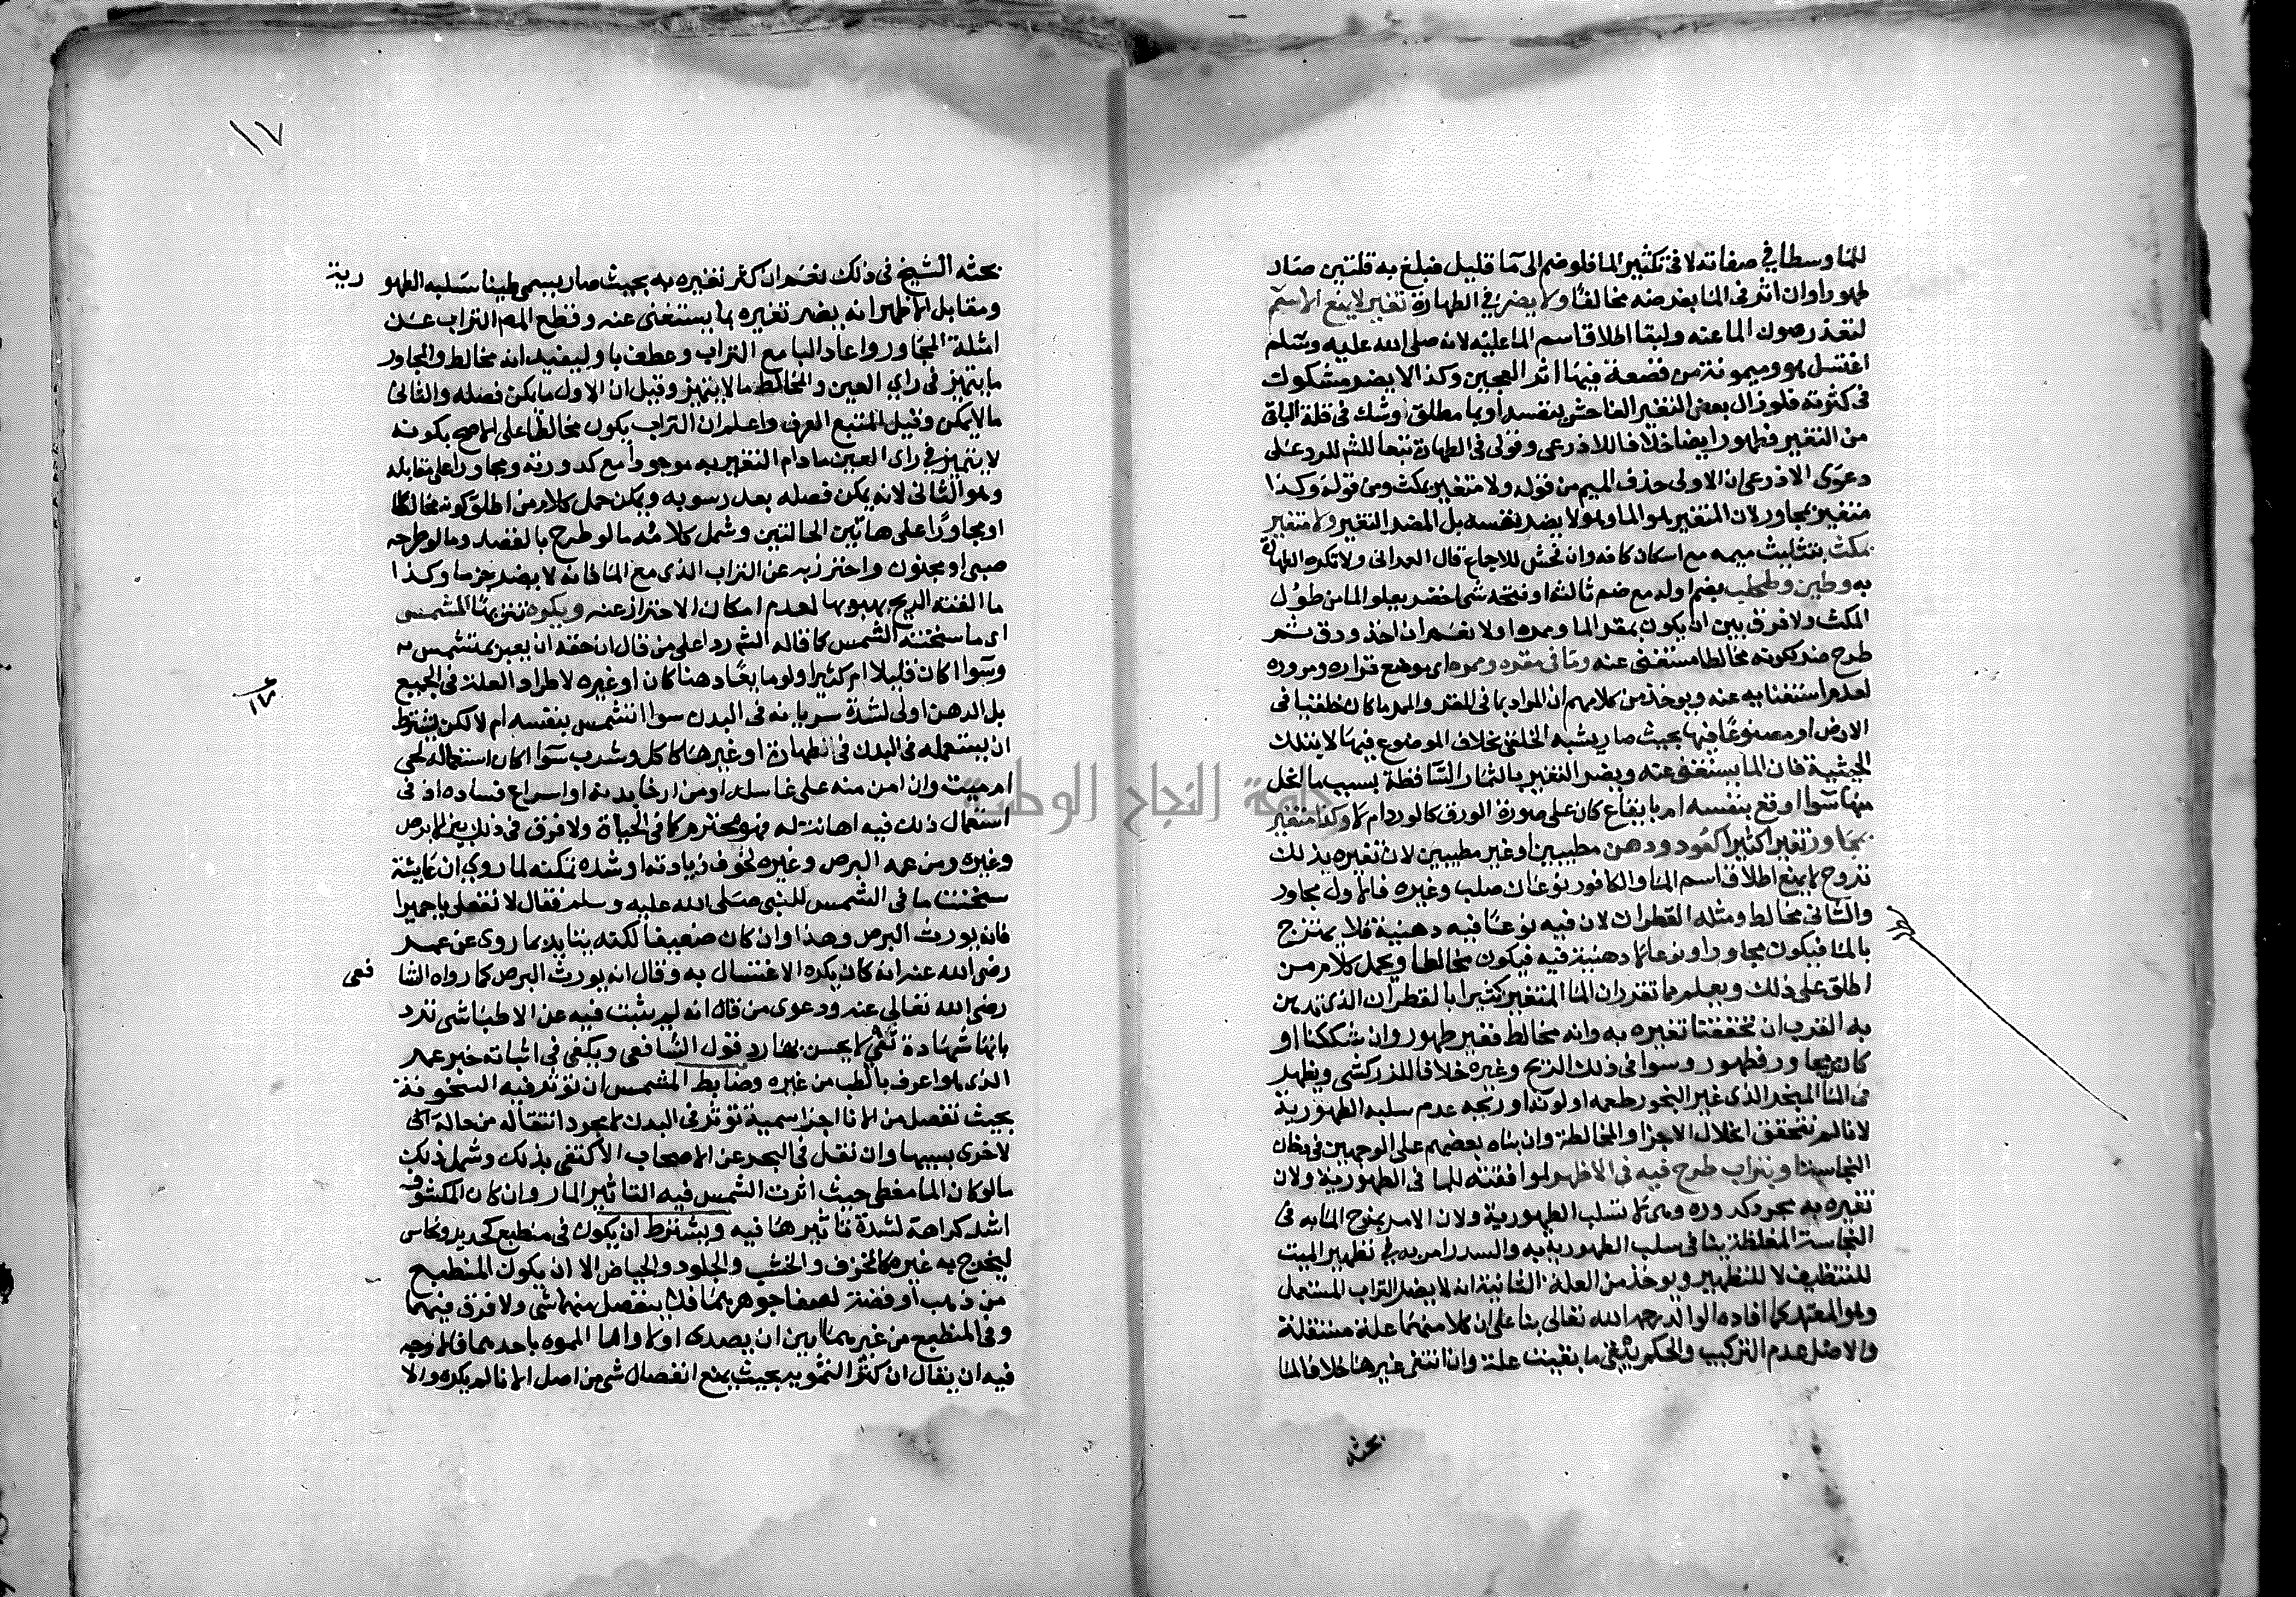 للما وسطا في صفاته لا في تكثير الما فلو ضم الى ما قليل فبلغ به قلتين صار
طهورا وان اثر في الما بفرضه مخالفا ولا يضر في الطهارة تغير لا يمنع الاسم
لتعذر صون الما عنه ولبقا اطلاق اسم الما عليه لانه صلى الله عليه وسلم
اغتسل هو وميمونة من قصعة فيها اثر العجين وكذا لا يضر مشكوك
في كثرته فلو زال بعض التغير الفاحش بنفسه أو بما مطلق وشك في قلة الباقي
من التغير فطهور ايضا خلافا للاذرعي وقولي في الطهارة تبعا للشم للرد على
دعوى الاذرعي ان الاولى حذف الميم من قوله ولا متغير بمكث ومن قوله وكذا
متغير بمجاور لان المتغير هو الما وهو لا يضر نفسه بل المضر التغير ولا متغير
بمكث بتثليث ميمه مع اسكان كافه وان فحش للاجماع قال العمراني ولا تكره الطهارة
به وطين وطحلب بضم اوله مع ضم ثالثه او فتحه شي اخضر يعلو الما من طول
المكث ولا فرق بين ان يكون بمقر الما وممره اولا نعم ان اخذ ودق ثم
طرح ضر لكونه مخالطا مستغنى عنه وما في مقره وممره اي موضع قراره ومروره
لعدم استغنائه عنه ويوخذ من كلامهم ان المراد بما في المقر والممر ما كان خلقيا في
الارض او مصنوعا فيها بحيث صار يشبه الخلقي بخلاف الموضوع فيها لا بتلك
الحيثية فان الما يستغنى عنه ويضر التغير بالثمار الساقطة بسبب ما انحل
منها سوا اوقع بنفسه ام بايقاع كان على صورة الورق كالورد ام لا وكذا متغير
بمجاور تغيرا كثيرا كعود ودهن مطيبين او غير مطيبين لان تغيره بذلك
تروح لا يمنع اطلاق اسم الما والكافور نوعان صلب وغيره فالاول مجاور
والثاني مخالط ومثله القطران لان فيه نوعا فيه دهنية فلا يمتزج
بالما فيكون مجاورا ونوعا لا دهنية فيه فيكون مخالطا ويحمل كلام من
اطلق على ذلك ويعلم مما تقرر ان الما المتغير كثيرا بالقطران الذي تدهن
به القرب ان تحققنا تغيره به وانه مخالط فغير طهور وان شككنا او
كان بمجاور فطهور وسوا في ذلك الريح وغيره خلافا للزركشي ويظهر
في الما المبخر الذي غير البخور طعمه او لونه او ريحه عدم سلبه الطهورية
لانا لم نتحقق انحلال الاجزا والمخالطة وان بناه بعضهم على الوجهين في دخان
النجاسة او بتراب طرح فيه في الاظهر لموافقته للما في الطهورية ولان
تغيره به مجرد كدورة وهي لا تسلب الطهورية ولان الامر بمزج الما به في
النجاسة المغلظة ينافي سلب الطهورية به والسدر امر به في تطهير الميت
للتنظيف لا للتطهير ويوخذ من العلة الثانية انه لا يضر التراب المستعمل
وهو المعتمد كما افاده الوالد رحمه الله تعالى بنا على ان كلا منهما علة مستقلة
والاصل عدم التركيب والحكم يبقى ما بقيت علة وان انتفى غيرها خلافا لما
بحثه
١٧
بحثه الشيخ في ذلك نعم ان كثر تغيره به بحيث صار يسمى طينا سلبه الطهو
رية
ومقابل الاظهر انه يضر تغيره بما يستغنى عنه وقطع المم التراب عن
امثلة المجاور واعاد البا مع التراب وعطف باو ليفيد انه مخالط والمجاور
ما يتميز في راي العين والمخالط ما لا يتميز وقيل ان الاول ما يمكن فصله والثاني
ما لا يمكن وقيل المتبع العرف واعلم ان التراب يكون مخالطا على الاصح بكونه
لا يتميز في راي العين ما دام التغير به موجودا مع كدورته ومجاورا على مقابله
وهو الثاني لانه يمكن فصله بعد رسوبه ويمكن حمل كلام من اطلق كونه مخالطا
او مجاورا على هاتين الحالتين وشمل كلامه ما لو طرح بالقصد وما لو طرحه
صبي او مجنون واحترز به عن التراب الذي مع الما فانه لا يضر جزما وكذا
ما القته الريح بهبوبها لعدم امكان الاحتراز عنه ويكره تنزيها المشمس
اي ما سخنته الشمس كما قاله الشم ردا على من قال ان حقه ان يعبر بمتشمس به
وسوا اكان قليلا ام كثيرا ولو مايعا دهنا كان او غيره لاطراد العلة في الجميع
بل الدهن اولى لشدة سريانه في البدن سوا اتشمس بنفسه ام لا لكن بشرط
ان يستعمله في البدن في طهارة او غيرها كاكل وشرب سوا اكان استعماله لحي
ام ميت وان امن منه على غاسله او من ارخا بدنه او اسراع فساده اذ في
استعمال ذلك فيه اهانة له فهو محترم كما في الحياة ولا فرق في ذلك بين الابرص
وغيره ومن عمه البرص وغيره لخوف زيادته او شدة تمكنه لما روي ان عايشة
سخنت ما في الشمس للنبي صلى الله عليه وسلم فقال لا تفعلي يا حميرا
فانه يورث البرص وهذا وان كان ضعيفا لكنه يتايد بما روي عن عمر
رضي الله عنه انه كان يكره الاغتسال به وقال انه يورث البرص كما رواه الشا
فعي
رضي الله تعالى عنه ودعوى من قال انه لم يثبت فيه عن الاطبا شي ترد
بانها شهادة نفي لا يحسن بها رد قول الشافعي ويكفي في اثباته خبر عمر
الذي هو اعرف بالطب من غيره وضابط المشمس ان توثر فيه السخونة
بحيث تفصل من الانا اجزا سمية توثر في البدن لا مجرد انتقاله من حالة الى
لاخرى بسببها وان نقل في البحر عن الاصحاب الاكتفى بذلك وشمل ذلك
ما لو كان الما مغطى حيث اثرت الشمس فيه التاثير المار وان كان المكشوف
اشد كراهة لشدة تاثيرها فيه ويشترط ان يكون في منطبع كحديد ونحاس
ليخرج به غيره كالخزف والخشب والجلود والحياض الا ان يكون المنطبع
من ذهب او فضة لصفا جوهرهما فلا ينفصل منهما شي ولا فرق فيهما
وفي المنطبع من غيرهما بين ان يصدى اولا واما المموه باحدهما فالاوجه
فيه ان يقال ان كثر التمويه بحيث يمنع انفصال شي من اصل الانا لم يكره والا
جامعة النجاح الوطنية